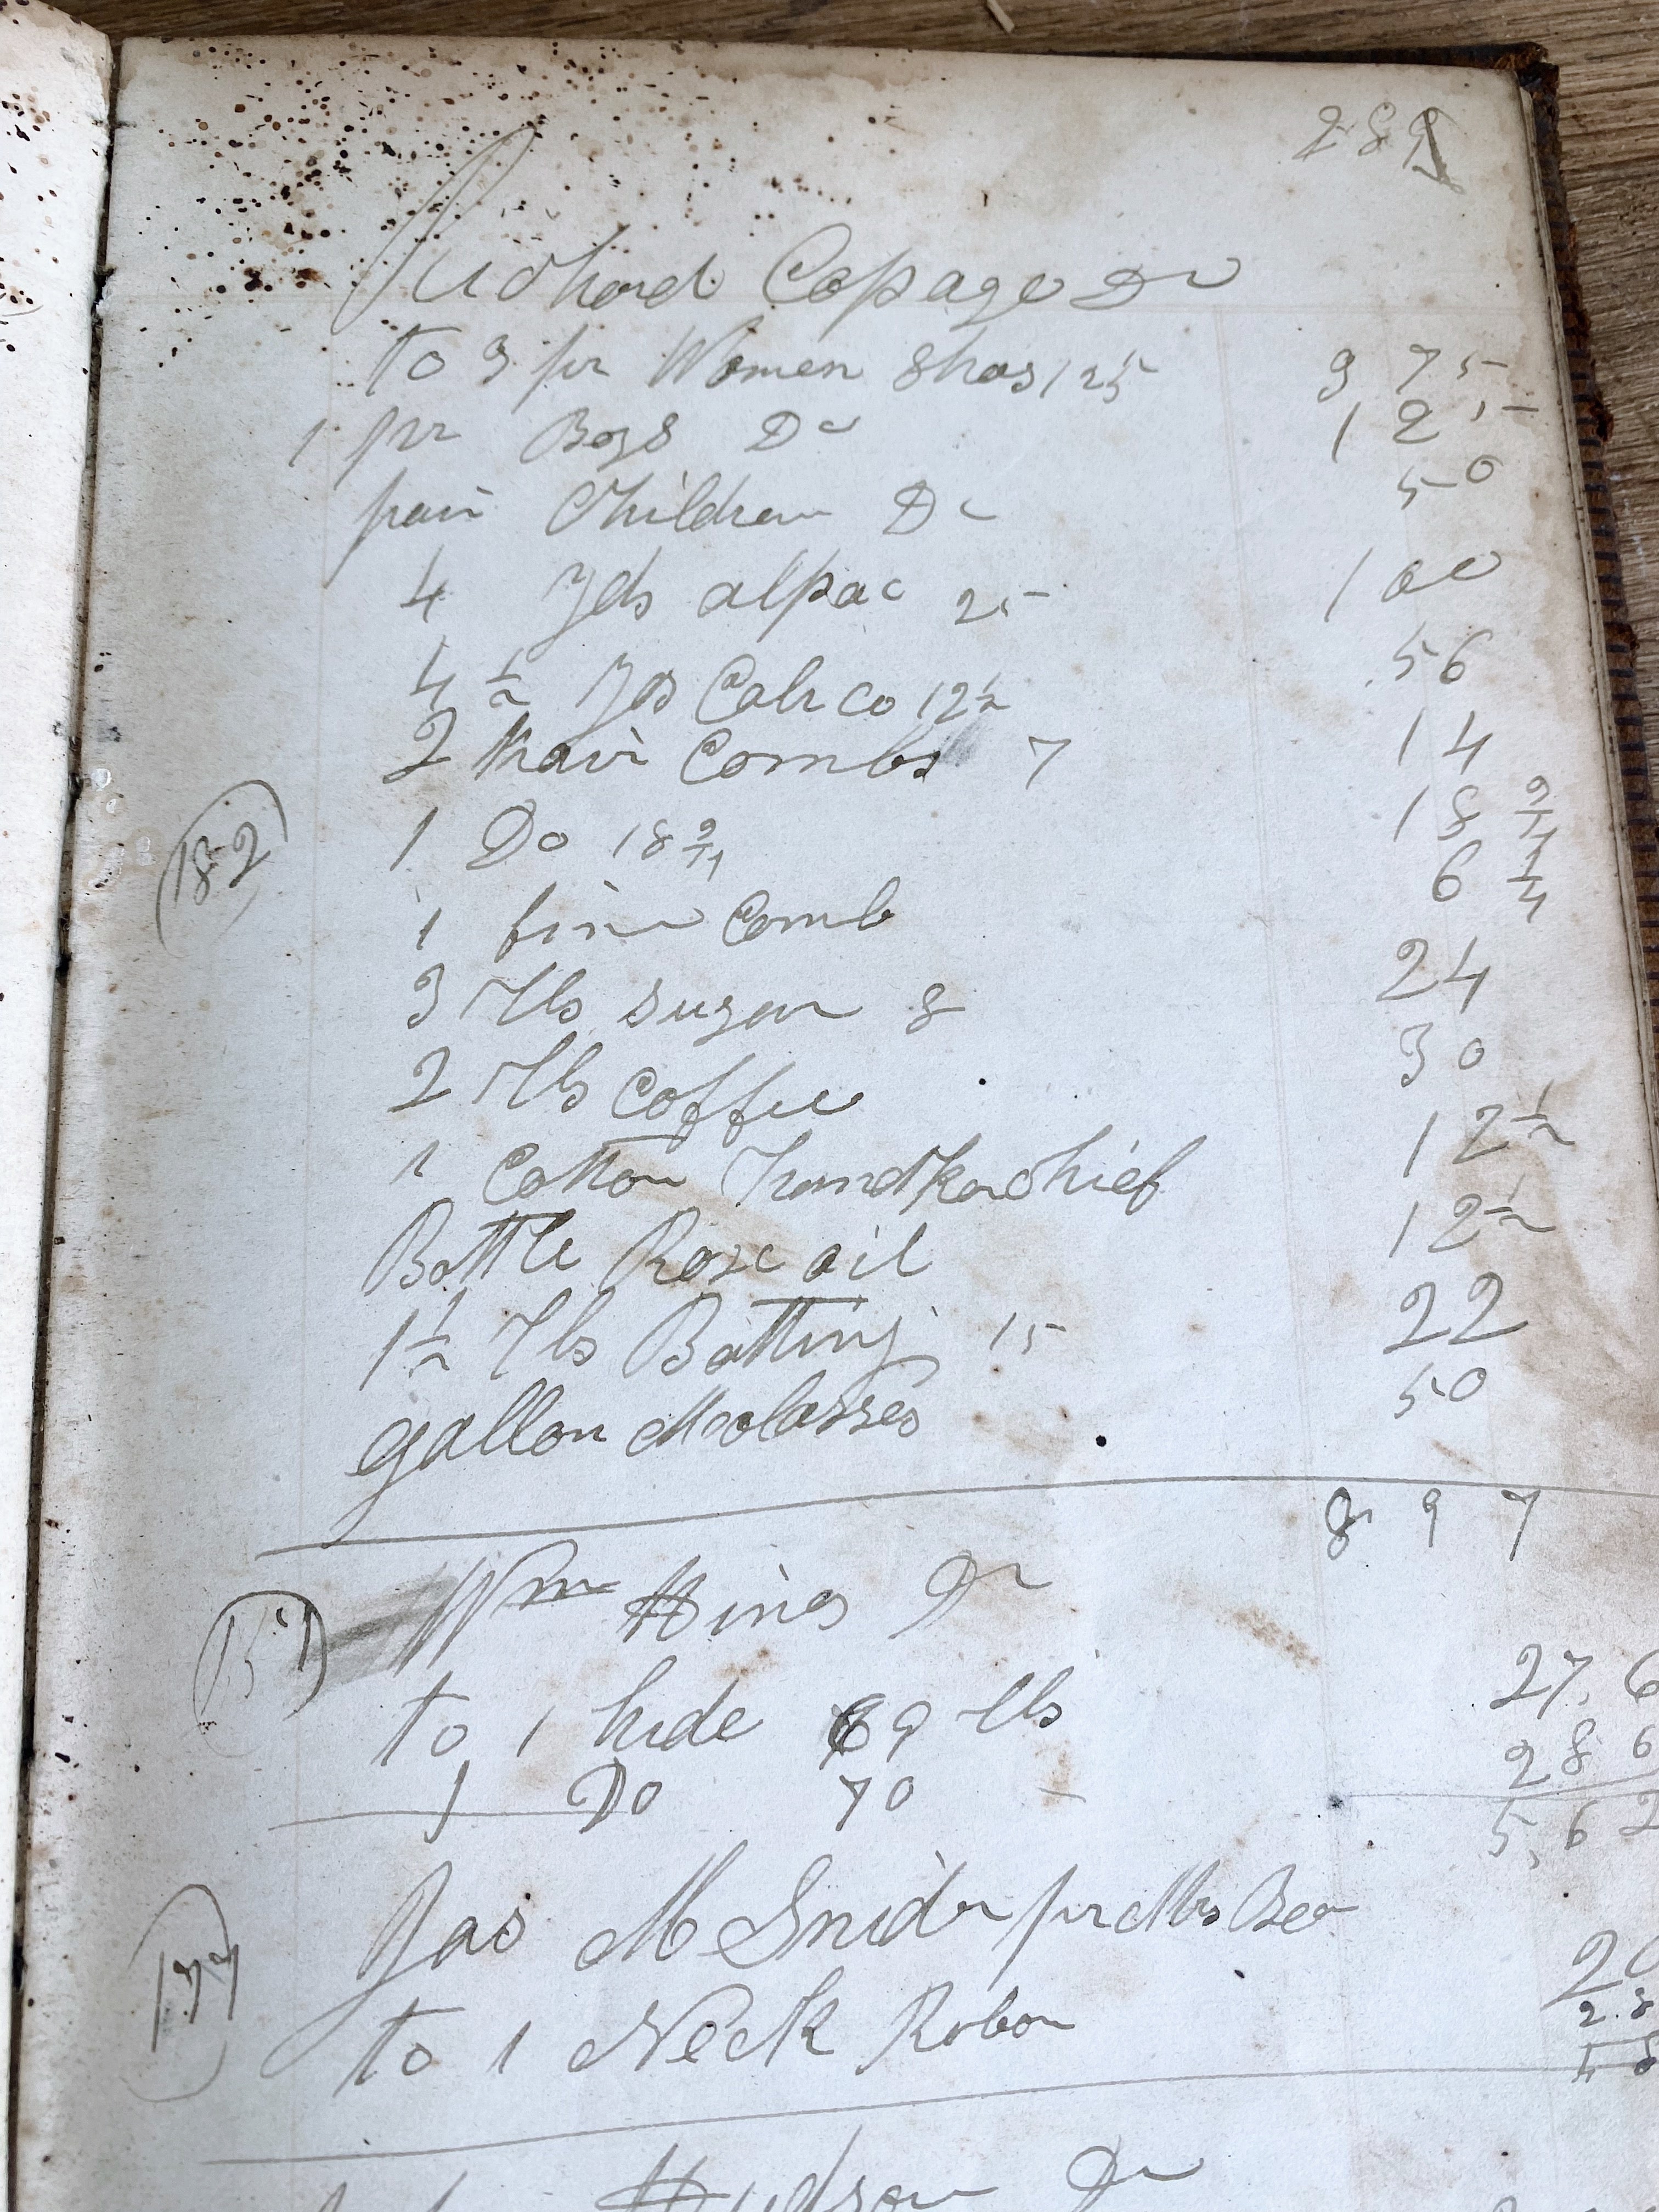 289
Richard Copage Dr
to 3 pr Women Shos 125 3 75
1 pr Boys Do 1 25
pair Children Do 50
4 Yds alpac 25 1 00
4 1/2 Yds Calico 12 1/2 56
2 hair Combs 7 14
182
1 Do 18 3/4 18 3/4
1 fine Comb 6 1/4
3 lbs Sugar 8 24
2 lbs Coffee 30
1 Cotton handkerchief 12 1/2
Bottle Rose oil 12 1/2
1 1/2 lbs Batting 15 22
gallon Molasses 50
8 97
Wm Hines Dr
151
to 1 hide 69 lbs 27.6
1 Do 70 28 6
5,62
Jas M Snider pr Mrs
177
to 1 Neck Robon 20
Hudson Dr